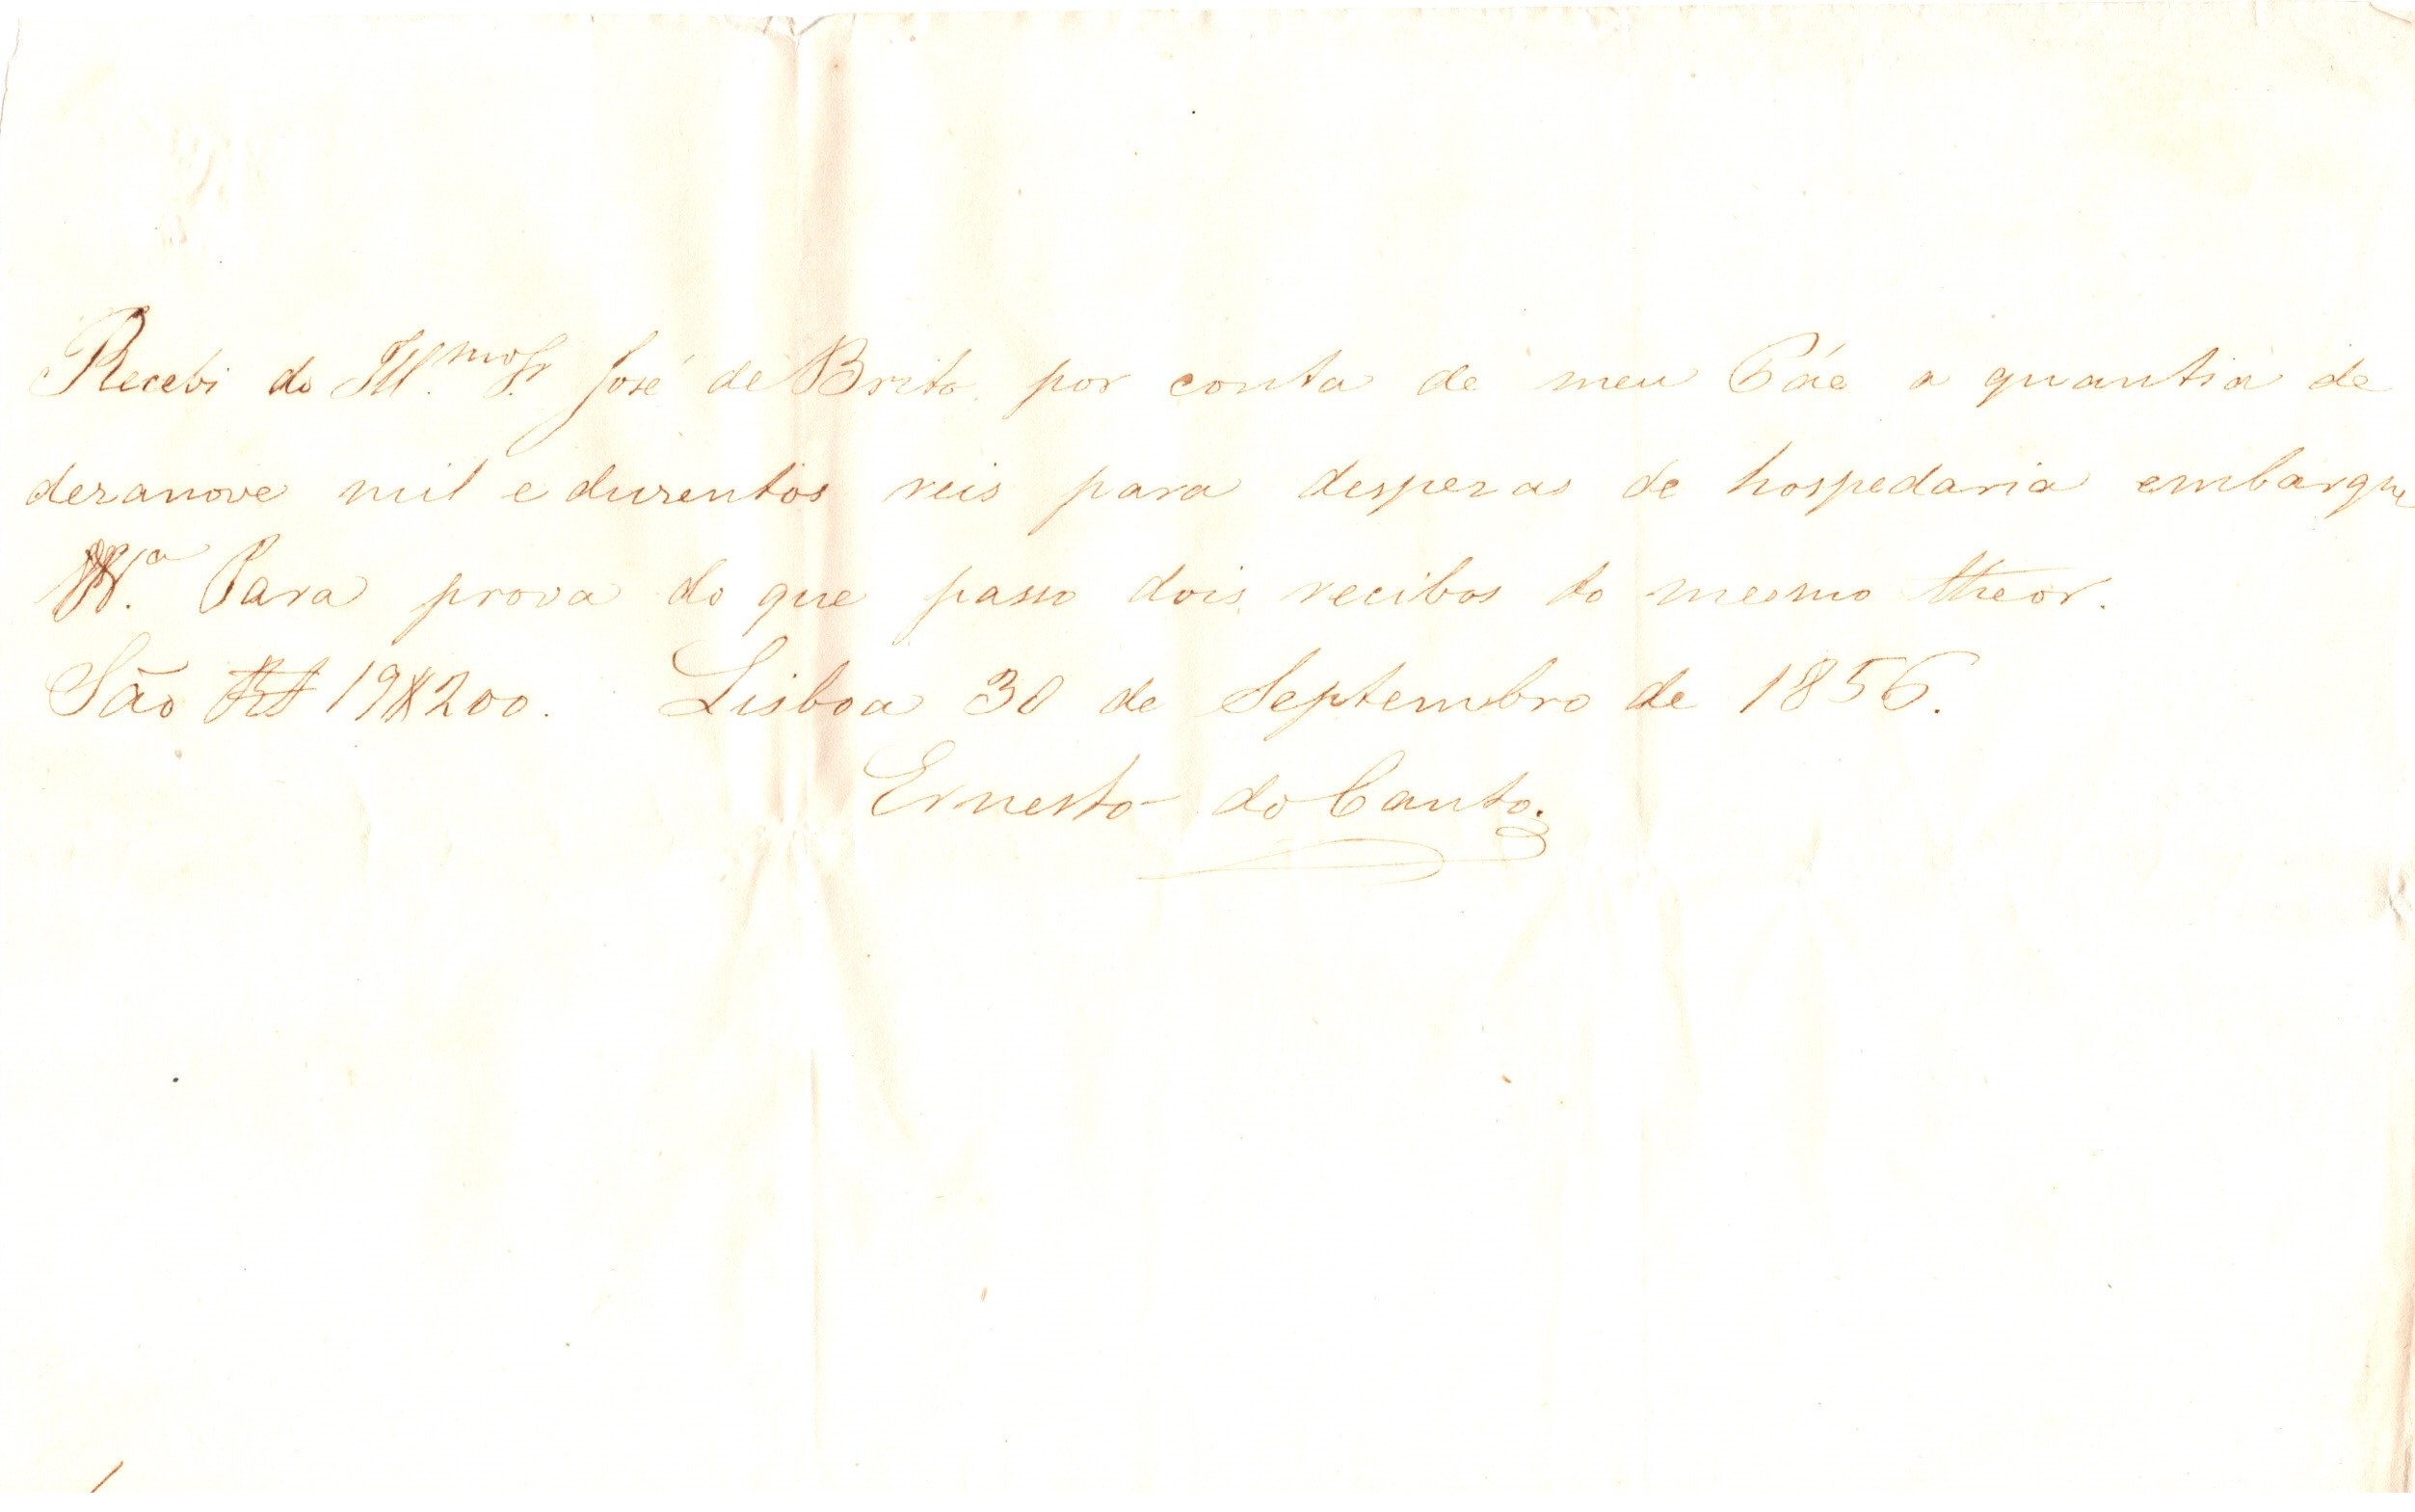 Recebi do Ill.mo Sr. José de Brito por conta de meu Páe a quantia de
dezanove mil e duzentos reis para despezas de hospedaria embarque
Para prova do que passo dois recibos do mesmo theor.
São Rs 19$200. Lisboa 30 de Septembro de 1856.
Ernesto do Canto.